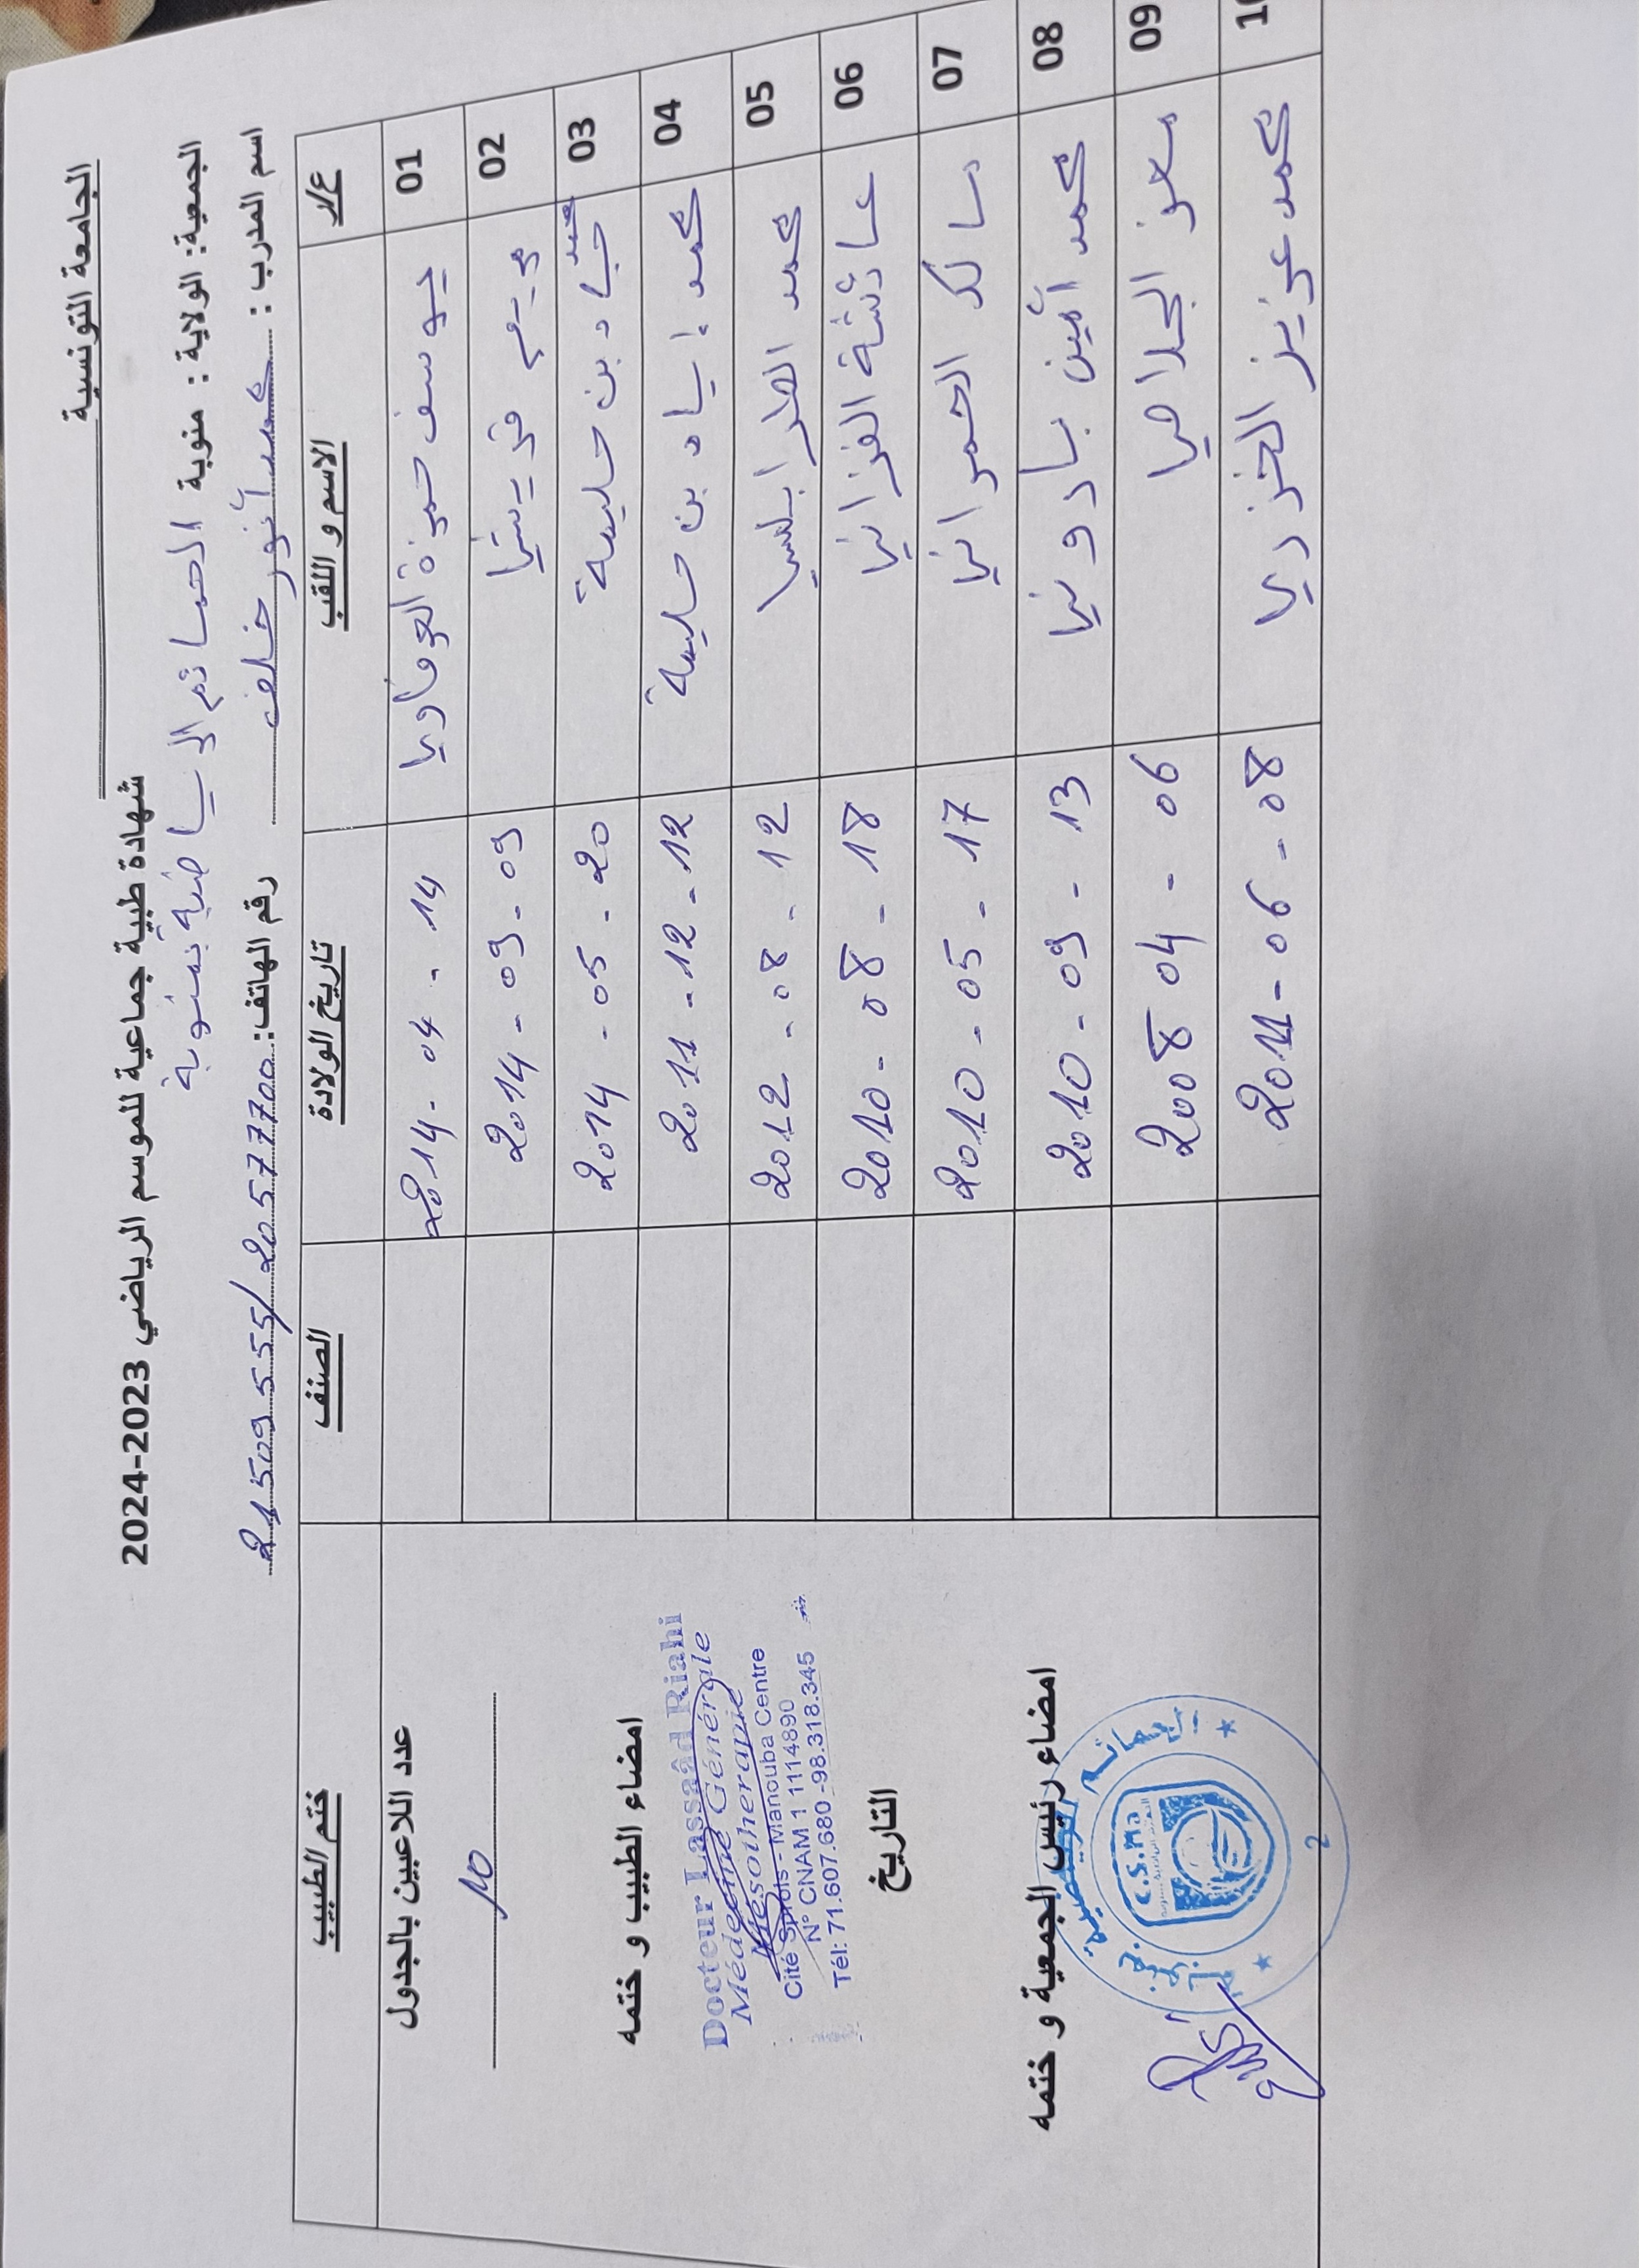 الجامعة التونسية
شهادة طبية جماعية للموسم الرياضي 2023-2024
الجمعية: الولاية : منوبة الحمائم الرياضية بمنوبة
اسم المدرب : محمد أنور خلف رقم الهاتف: 21509555/20577700
ع/ر الاسم و اللقب تاريخ الولادة الصنف ختم الطبيب
01 يوسف حمزة 2014-04-14
02 مريم قريشي 2014-09-09
03 محمد جياد بن حليمة 2014-05-20
04 محمد إياد بن حليمة 2011-12-12
05 محمد الطرابلسي 2012-08-12
06 عائشة الفزاني 2010-08-18
07 مالك الحمراني 2010-05-17
08 محمد أمين بادوني 2010-09-13
09 معز الجلاصي 2008 04-06
10 محمد عزيز الخزري 2011-06-08
عدد اللاعبين بالجدول
10
امضاء الطبيب و ختمه
Docteur Lassaâd Riahi
Médecine Générale
Mésothérapie
Cité Sprols - Manouba Centre
N° CNAM 1 1114890
Tél: 71.607.680 -98.318.345
التاريخ
امضاء رئيس الجمعية و ختمه
C.S.Ma
2